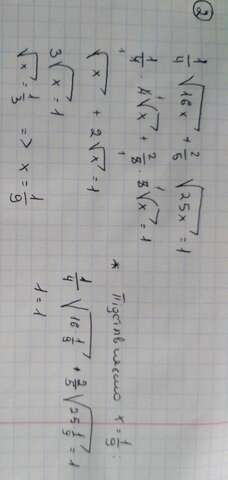 ②
1/4 √16x + 2/5 √25x = 1
1/4 · 4√x + 2/5 · 5√x = 1
√x + 2√x = 1
3√x = 1
√x = 1/3 => x = 1/9
* Підставимо x = 1/9 :
1/4 √16 1/9 + 2/5 √25 1/9 = 1
1 = 1